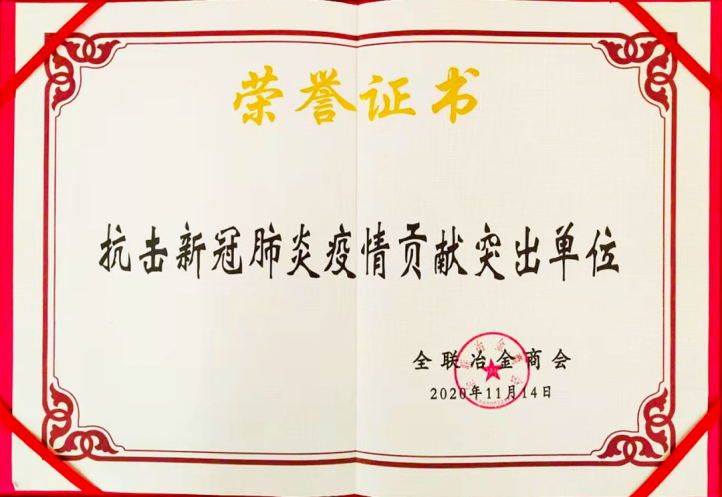 荣誉证书
抗击新冠肺炎疫情贡献突出单位
全联冶金商会
2020年11月14日